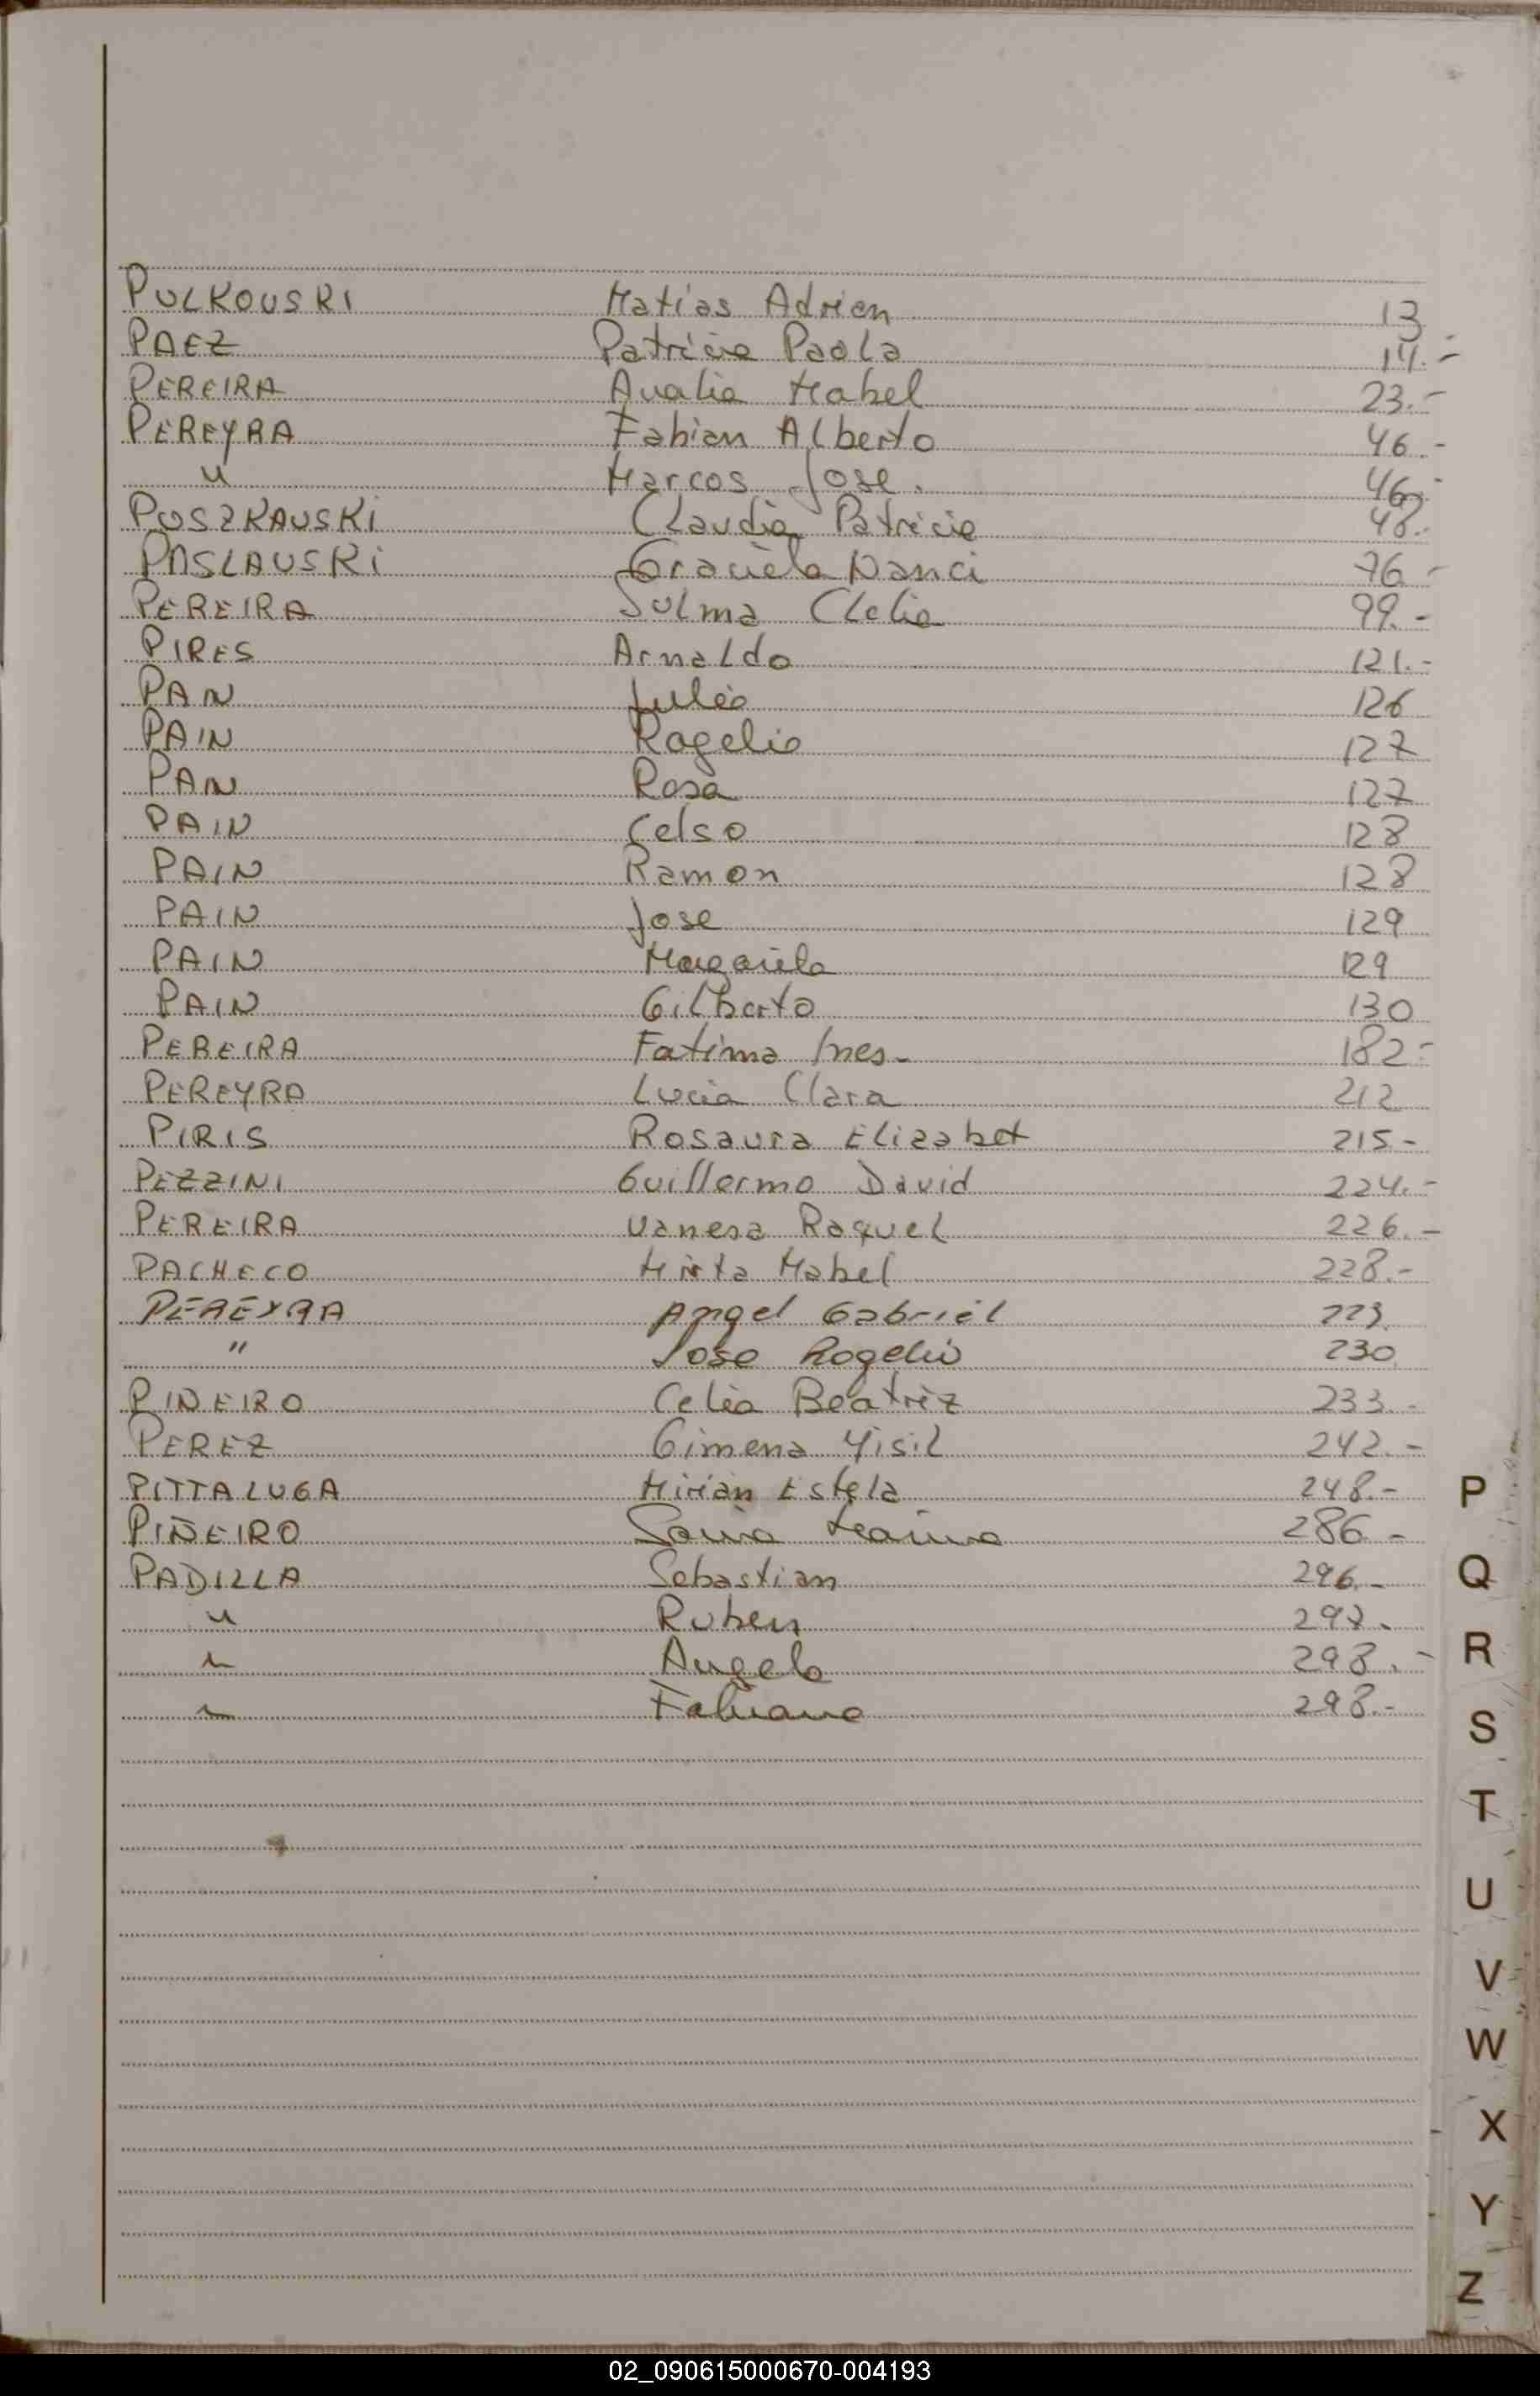 PULKOUSKI Matias Adrian 13
PAEZ Patricia Paola 14.-
PEREIRA Analia Mabel 23.-
PEREYRA Fabian Alberto 46.-
" Marcos Jose. 46.-
POSZKAUSKI Claudia Patricia 48.-
PASLAUSKI Graciela Nanci 76.-
PEREIRA Sulma Clelia 99.-
PIRES Arnaldo 121.-
PAN Julio 126
PAIN Rogelio 127
PAN Rosa 127
PAIN Celso 128
PAIN Ramon 128
PAIN Jose 129
PAIN Margarita 129
PAIN Gilberto 130
PEREIRA Fatima Ines.- 182.-
PEREYRA Lucia Clara 212
PIRIS Rosaura Elizabet 215-
PEZZINI Guillermo David 224.-
PEREIRA Vanesa Raquel 226.-
PACHECO Mirta Mabel 228.-
PEREYRA Angel Gabriel 229
" Jose Rogelio 230
PINEIRO Celia Beatriz 233.-
PEREZ Gimena Yisil 242.-
PITTALUGA Mirian Estela 248.-
PIÑEIRO 286.-
PADILLA Sebastian 296.-
" Ruben 297.
" Angela 298.-
" Fabiana 298.-
P
Q
R
S
T
U
V
W
X
Y
Z
02_090615000670-004193